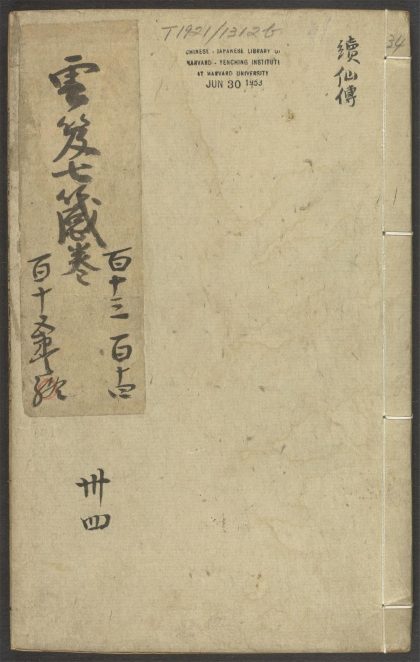 T1921/1312b
34
CHINESE - JAPANESE LIBRARY OF
HARVARD - YENCHING INSTITUTE
AT HARVARD UNIVERSITY
JUN 30 1953
續仙傳
雲笈七籤卷
百十三 百十四
百十五
卅四